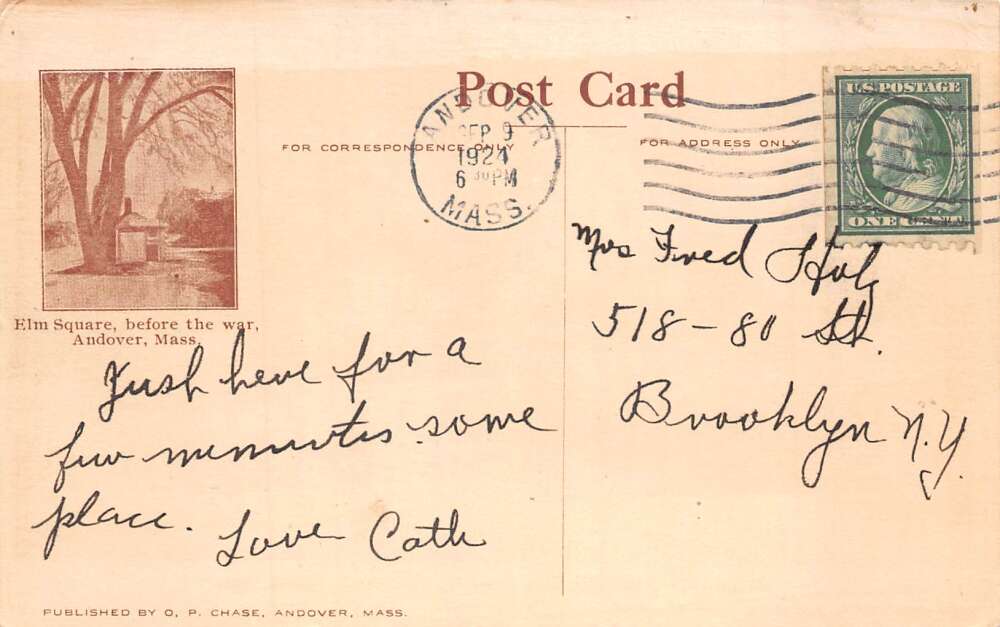 Post Card
FOR CORRESPONDENCE ONLY
FOR ADDRESS ONLY
ANDOVER
SEP 9
1924
6 30 PM
MASS.
U.S. POSTAGE
ONE
Elm Square, before the war,
Andover, Mass.
Just here for a
few minutes some
place.
Love Cath
Mrs Fred Holz
518 - 80 St.
Brooklyn N.Y.
PUBLISHED BY O. P. CHASE, ANDOVER, MASS.